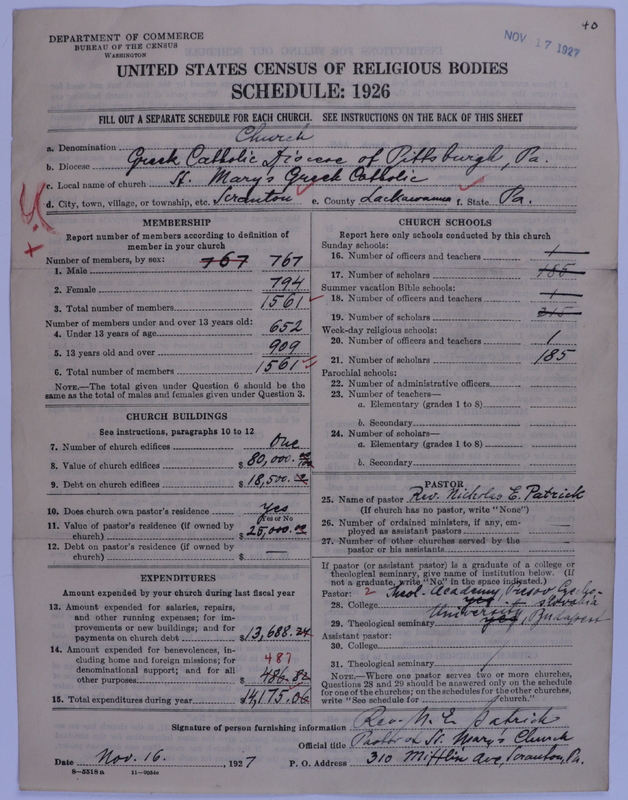 40
NOV 17 1927
DEPARTMENT OF COMMERCE
BUREAU OF THE CENSUS
WASHINGTON
UNITED STATES CENSUS OF RELIGIOUS BODIES
SCHEDULE: 1926
FILL OUT A SEPARATE SCHEDULE FOR EACH CHURCH. SEE INSTRUCTIONS ON THE BACK OF THIS SHEET
a. Denomination Church
b. Diocese Greek Catholic Diocese of Pittsburgh, Pa.
c. Local name of church St. Mary's Greek Catholic
d. City, town, village, or township, etc. Scranton e. County Lackawanna f. State Pa.
MEMBERSHIP
Report number of members according to definition of
member in your church
Number of members, by sex: 767 767
1. Male
2. Female 794
3. Total number of members 1561
Number of members under and over 13 years old:
4. Under 13 years of age 652
5. 13 years old and over 909
6. Total number of members 1561
NOTE.—The total given under Question 6 should be the
same as the total of males and females given under Question 3.
CHURCH BUILDINGS
See instructions, paragraphs 10 to 12
7. Number of church edifices One
8. Value of church edifices $80,000.
9. Debt on church edifices $18,500.
10. Does church own pastor's residence yes
(Yes or No
11. Value of pastor's residence (if owned by
church) $25,000.00
12. Debt on pastor's residence (if owned by
church) $ —
EXPENDITURES
Amount expended by church during last fiscal year
13. Amount expended for salaries, repairs,
and other running expenses; for im-
provements or new buildings; and for
payments on church debt $13,688.24
14. Amount expended for benevolences, in-
cluding home and foreign missions; for
denominational support; and for all
other purposes 487 $486.82
15. Total expenditures during year $14,175.06
CHURCH SCHOOLS
Report here only schools conducted by this church
Sunday schools:
16. Number of officers and teachers 1
17. Number of scholars 185
Summer vacation Bible schools:
18. Number of officers and teachers 1
19. Number of scholars 215
Week-day religious schools:
20. Number of officers and teachers 1
21. Number of scholars 185
Parochial schools:
22. Number of administrative officers
23. Number of teachers—
a. Elementary (grades 1 to 8)
b. Secondary
24. Number of scholars—
a. Elementary (grades 1 to 8)
b. Secondary
PASTOR
25. Name of pastor Rev. Nicholas E. Patrick
(If church has no pastor, write "None")
26. Number of ordained ministers, if any, em-
ployed as assistant pastors —
27. Number of other churches served by the
pastor or his assistants —
If pastor (or assistant pastor) is a graduate of a college or
theological seminary, give name of institution below. (If
not a graduate, write "No" in the space indicated.)
Pastor: 2 Theol. Academy, Presov Czecho-
28. College yes slovakia
University
29. Theological seminary yes, Budapest
Assistant pastor:
30. College
31. Theological seminary
NOTE.—Where one pastor serves two or more churches,
Questions 28 and 29 should be answered only on the schedule
for one of the churches; on the schedules for the other churches,
write "See schedule for church."
Signature of person furnishing information Rev. N. E. Patrick
Official title Pastor of St. Mary's Church
Date Nov. 16. , 1927 P. O. Address 310 Mifflin Ave, Scranton, Pa.
8—5518a 11—9254a